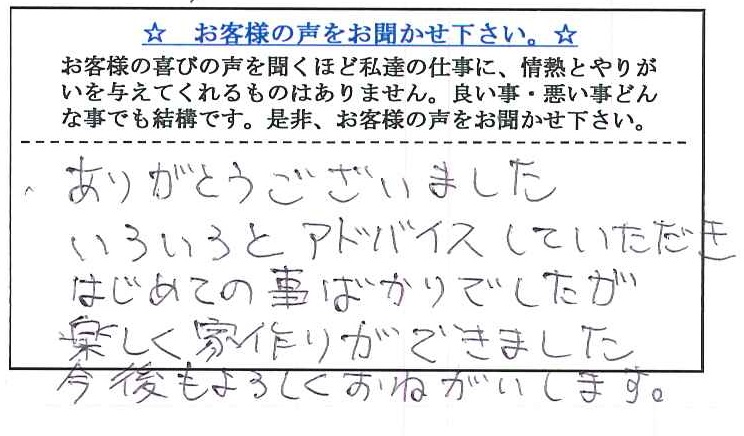 ☆ お客様の声をお聞かせ下さい。☆
お客様の喜びの声を聞くほど私達の仕事に、情熱とやりが
いを与えてくれるものはありません。良い事・悪い事どん
な事でも結構です。是非、お客様の声をお聞かせ下さい。
ありがとうございました
いろいろとアドバイスしていただき
はじめての事ばかりでしたが
楽しく家作りができました
今後もよろしくおねがいします。